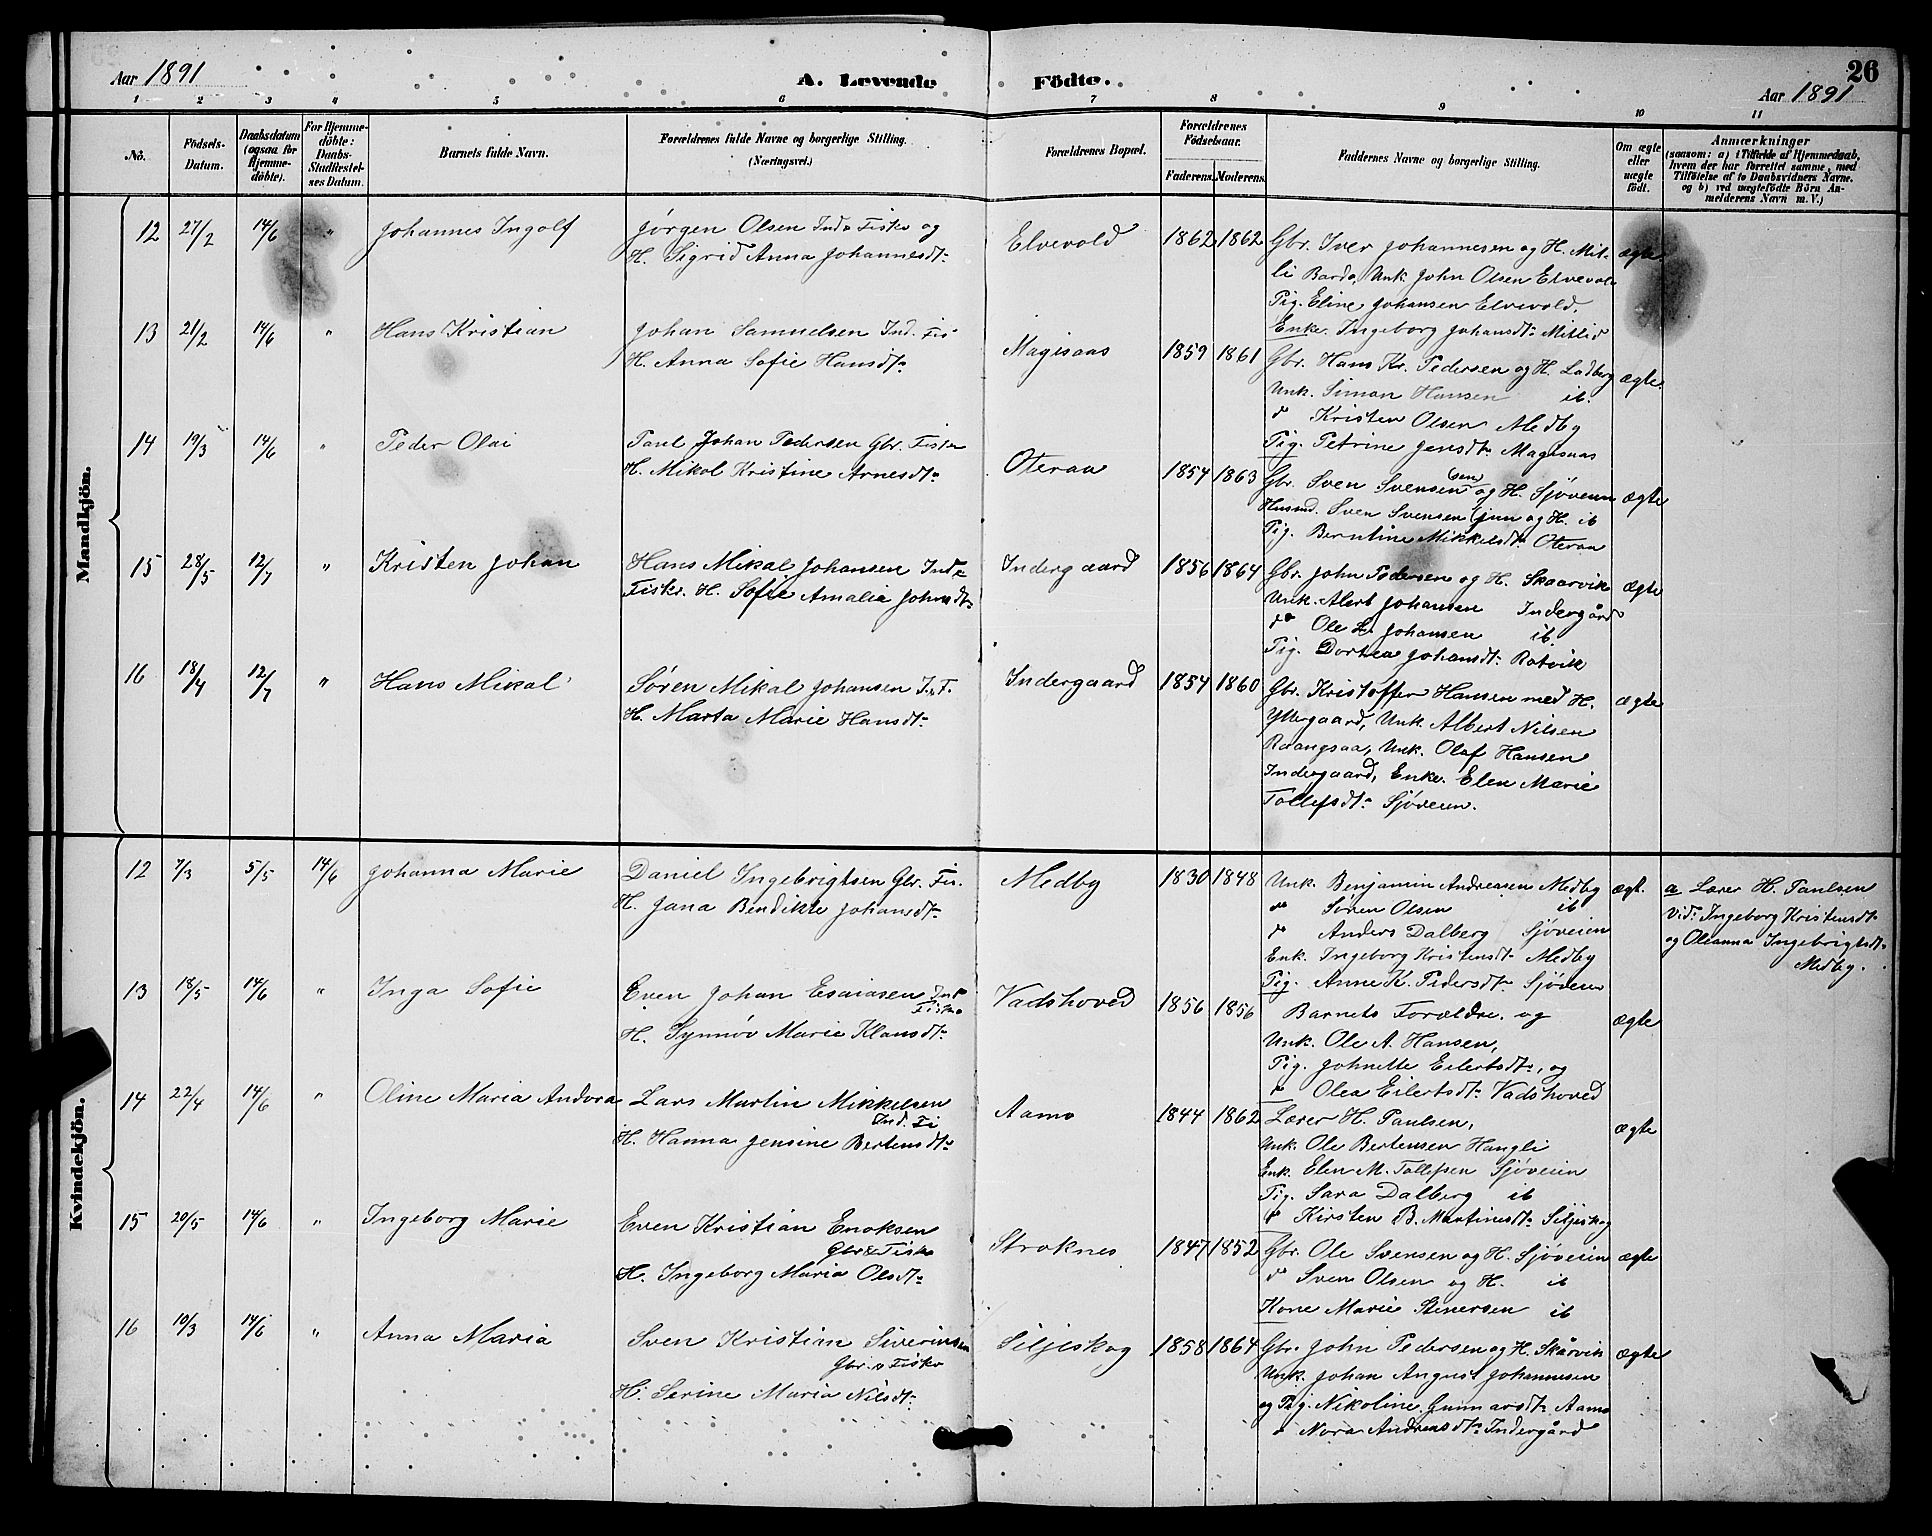 Aar 1891
A. Levende Födte.
26
Aar 1891
1 2 3 4 5 6 7 8 9 10 11
No.
Födsels-Datum.
Daabsdatum (ogsaa for Hjemme-döbte).
For Hjemme-döbte: Daabs-Stadfæstel-ses Datum.
Barnets fulde Navn.
Forældrenes fulde Navne og borgerlige Stilling. (Næringsvei.)
Forældrenes Bopæl.
Forældrenes Födselsaar.
Faderens. Moderens.
Faddernes Navne og borgerlige Stilling.
Om ægte eller uægte födt.
Anmærkninger
(saasom: a) i Tilfælde af Hjemmedaab, hvem der har forrettet samme, med Tilföielse af to Daabsvidners Navne. og b) ved uægtefödte Börn An-melderens Navn m. V.)
Mandkjön.
12 27/2 14/6 " Johannes Ingolf
Jørgen Olsen Inds Fisker og
H. Sigrid Anna Johannesdt.
Elvevold 1862 1862
Gbr. Iver Johannesen og H. Mit-
li Bardo, Unk. John Olsen Elvevol
Pig. Eline Johansen Elvevold.
Enke. Ingeborg Johansdt. Mitlid
ægte.
13 21/2 14/6 " Hans Kristian
Johan Samuelsen Ind. Fis
H. Anna Sofie Hansdt.
Magisaas 1859 1861
Gbr. Hans Kr. Pedersen og H. Ladberg
Unk. Simon Hansen ib.
do Kristen Olsen Medby
Pig. Petrine Jensdt. Magisaas
ægte.
14 19/3 14/6 " Peder Olai
Paul Johan Pedersen Gbr. Fisker
H. Mikol Kristine Arnesdt.
Oteraa 1854 1863
Gbr. Sven Svensen (sen) og H. Sjöveien
Husmd. Sven Svensen (jun og H. ib
Pig. Berntine Mikkelsdt. Oteraa
ægte
15 28/5 12/7 " Kristen Johan
Hans Mikal Johansen Inds
Fiskr. H. Sofie Amalie Johnsdt.
Indergaard 1856 1864
Gbr. John Pedersen og H. Skaarvik
Unk. Alert Johansen Indergård
do Ole L. Johansen ib
Pig. Dortea Johansdt. Rotvik
ægte
16 18/4 12/7 " Hans Mikal
Søren Mikal Johansen I. F.
H. Marta Marie Hansdt.
Indergaard 1854 1860
Gbr. Kristoffer Hansen med H.
Yttergaard, Unk. Albert Nilsen
Raangsaa, Unk. Olaf Hansen
Indergaard, Enke. Elen Marie
Tollefsdt. Sjöveien.
ægte
Kvindekjön.
12 7/3 5/5 14/6 Johanna Marie
Daniel Ingebrigtsen Gbr. Fis.
H. Jana Bendikte Johansdt.
Medby 1830 1848
Unk. Benjamin Andreasen Medby
do Søren Olsen ib
do Anders Dalberg Sjöveien
Enk. Ingeborg Kristensdt. Medby
Pig. Anne K. Pedersdt. Sjöveien
ægt.
a Lærer H. Paulsen
Vid. Ingeborg Kristensdt.
og Oleanna Ingebrigtsdt.
Medby.
13 18/5 14/6 " Inga Sofie
Even Johan Esaiasen Ind.
Fisker
H. Synnøv Marie Klausdt.
Vadshoved 1856 1856
Barnets Forældre og
Unk. Ole A. Hansen,
Pig. Johnette Eilertsdt., og
do Olea Eilertsdt. Vadshoved
ægte
14 22/4 14/6 " Oline Maria Andora
Lars Martin Mikkelsen
Ind. Fi
H. Hanna Jensine Bertensdt.
Aamo 1844 1862
Lærer H. Paulsen,
Unk. Ole Bertensen Hangli
Enk. Elen M. Tollefsen Sjöveien
Pig. Sara Dalberg ib
do Kirsten B. Martinsdt. Siljeskog
ægte
15 20/5 14/6 " Ingeborg Marie
Even Kristian Enoksen
Gbr & Fisker
H. Ingeborg Maria Olsdt.
Stroknes 1847 1852
Gbr. Ole Svensen og H. Sjöveien
do Sven Olsen og H. ib
Kone Marie Stenersen ib
ægte
16 10/3 14/6 " Anna Maria
Sven Kristian Siverinsen
Gbr. o Fisker
H. Serine Maria Nilsdt.
Siljeskog 1858 1864
Gbr. John Pedersen og H. Skårvik
Unk. Johan August Johannesen
og Pig. Nikoline Gunnarsdt. Aamo
do Nora Andreasdt. Indergård
ægte